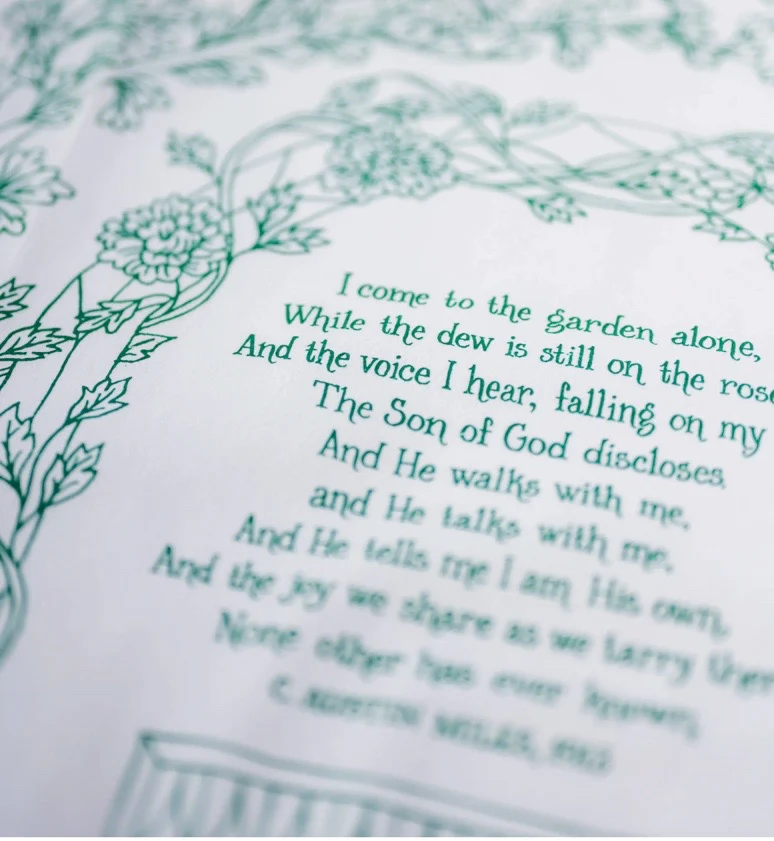 I come to the garden alone,
While the dew is still on the rose
And the voice I hear, falling on my
The Son of God discloses,
And He walks with me,
and He talks with me,
And He tells me I am His own,
And the joy we share as we tarry ther
None other has ever known,
C. AUSTIN MILES, 1912